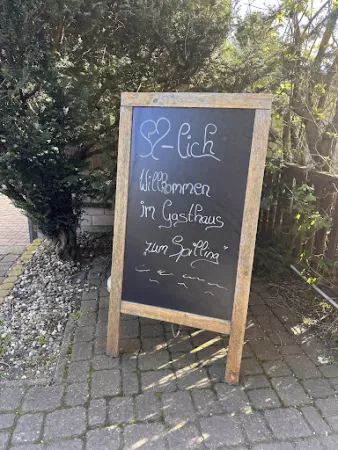 ♡-lich
Willkommen
im Gasthaus
"zum Spilling"